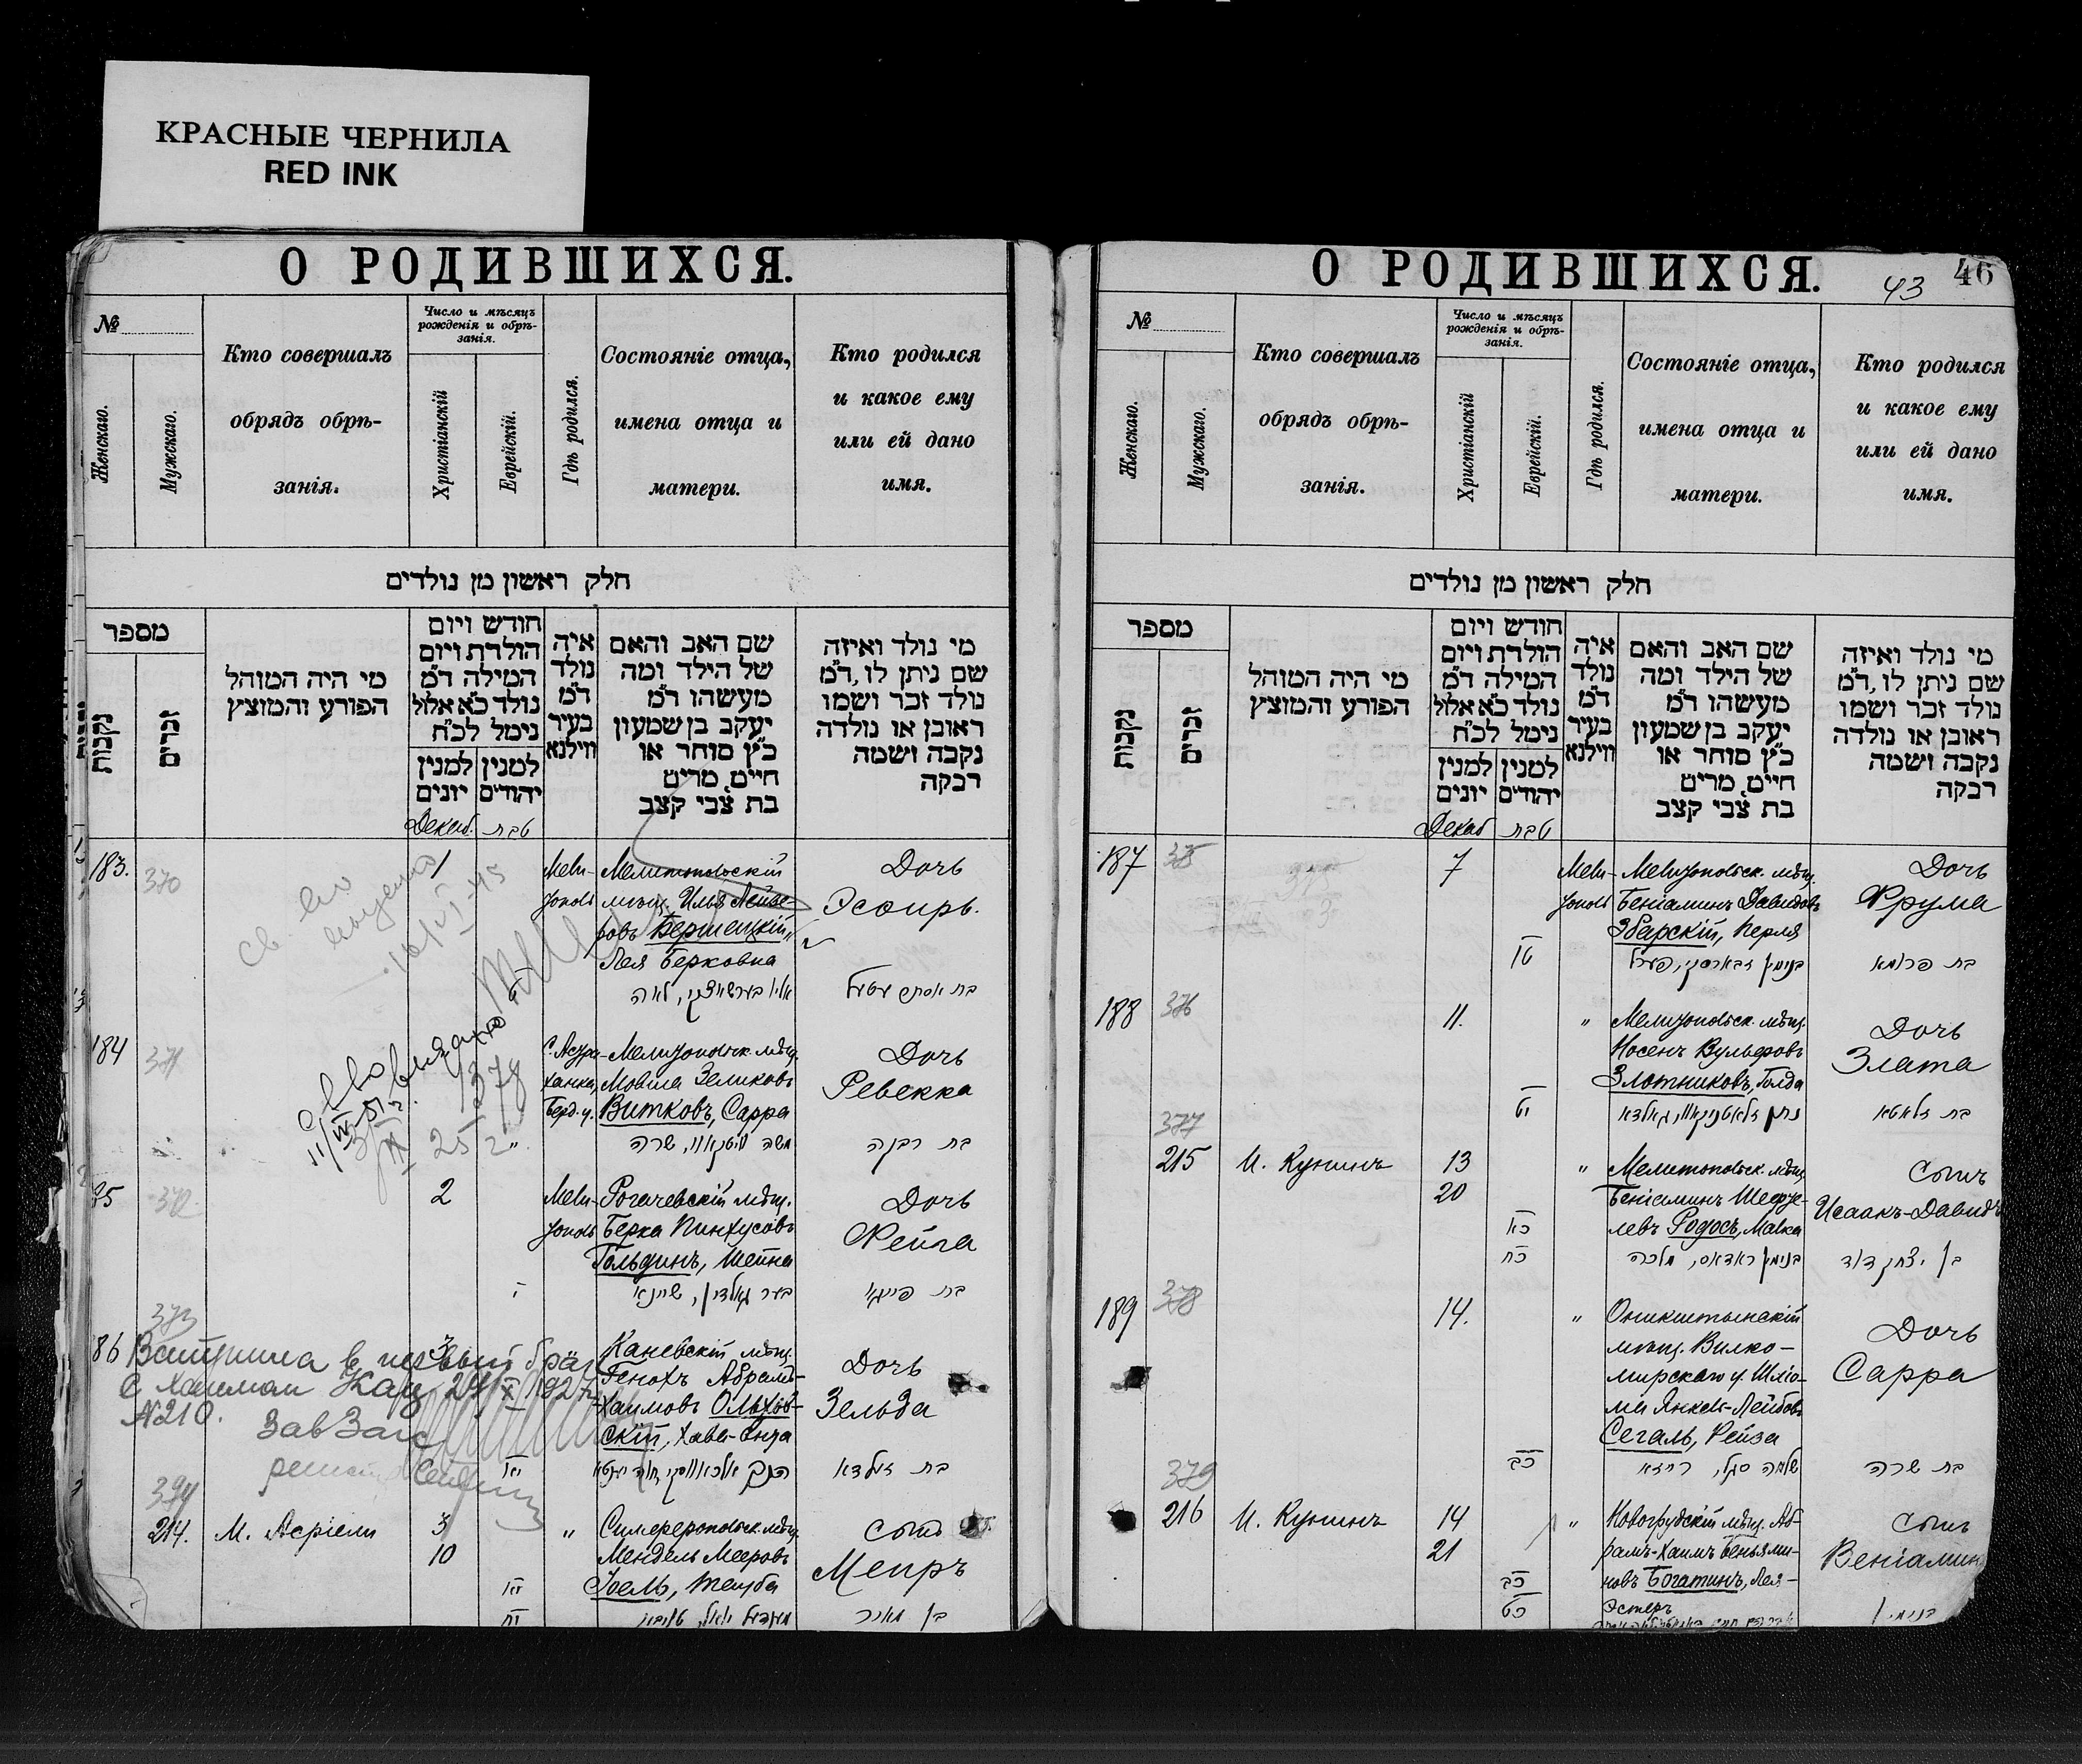 КРАСНЫЕ ЧЕРНИЛА
RED INK
О РОДИВШИХСЯ.
№
Женскаго.
Мужскаго.
Кто совершалъ
обрядъ обрѣ-
занія.
Число и мѣсяцъ
рожденія и обрѣ-
занія.
Христіанскій
Еврейскій.
Гдѣ родился.
Состояніе отца,
имена отца и
матери.
Кто родился
и какое ему
или ей дано
имя.
חלק ראשון מן נולדים
מספר
נקבות
זכרים
מי היה המוהל
הפורע והמוצץ
חודש ויום
הולדת ויום
המילה ד״מ
נולד כ״א אלול
נימל לכ״ח
למנין יונים
למנין יהודים
איה
נולד
ד״מ
בעיר
ווילנא
שם האב והאם
של הילד ומה
מעשהו ד״מ
יעקב בן שמעון
כ״ץ סוחר או
חיים, מרים
בת צבי קצב
מי נולד ואיזה
שם ניתן לו, ד״מ
נולד זכר ושמו
ראובן או נולדה
נקבה ושמה
רבקה
Декаб. טבת
183.
370
1
Мели-
тополь
Мелитопольскій
мѣщ. Илья Лейзе-
ровъ Бершецкій,
Лея Берковна
Дочь
Эсѳирь.
184
371
С. Астра-
ханка,
Берд. у.
Мелитопольск. мѣщ.
Мовша Зеликовъ
Витковъ, Сарра
משה וויטקאוו, שרה
Дочь
Ревекка
בת רבקה
85
372
2
Мели-
тополь
Рогачевскій мѣщ.
Берка Пинхусовъ
Гольдинъ, Шейна
בער גאלדין, שיינא
Дочь
Фейга
בת פייגא
373
86
3
Вступила в первый брак
с Хаимом Кац 24/X 1927
№210.
ЗавЗагс
Каневскій мѣщ.
Генохъ Абрамъ-
Хаимовъ Ольхов-
скій, Хава-Энта
Дочь
Зельда
בת זעלדא
374
214.
М. Асріели
3
10
"
Симферопольск. мѣщ.
Мендель Мееровъ
Іоель, Тауба
Сынъ
Меиръ
בן מאיר
О РОДИВШИХСЯ.
43
46
№
Женскаго.
Мужскаго.
Кто совершалъ
обрядъ обрѣ-
занія.
Число и мѣсяцъ
рожденія и обрѣ-
занія.
Христіанскій
Еврейскій.
Гдѣ родился.
Состояніе отца,
имена отца и
матери.
Кто родился
и какое ему
или ей дано
имя.
חלק ראשון מן נולדים
מספר
נקבות
זכרים
מי היה המוהל
הפורע והמוצץ
חודש ויום
הולדת ויום
המילה ד״מ
נולד כ״א אלול
נימל לכ״ח
למנין יונים
למנין יהודים
איה
נולד
ד״מ
בעיר
ווילנא
שם האב והאם
של הילד ומה
מעשהו ד״מ
יעקב בן שמעון
כ״ץ סוחר או
חיים, מרים
בת צבי קצב
מי נולד ואיזה
שם ניתן לו, ד״מ
נולד זכר ושמו
ראובן או נולדה
נקבה ושמה
רבקה
Декаб טבת
187
375
7
טו
Мели-
тополь
Мелитопольск. мѣщ.
Беніаминъ Давидовъ
Збарскій, Перля
בנימין זבארסקי, פערל
Дочь
Фрума
בת פרומא
188
376
11.
יט
"
Мелитопольск. мѣщ.
Носенъ Вульфовъ
Злотниковъ, Голда
נתן זלאטניקאוו, גאלדא
Дочь
Злата
בת זלאטא
377
215
И. Кунинъ
13
20
כא
כח
"
Мелитопольск. мѣщ.
Беніаминъ Шефте-
левъ Родосъ, Малка
בנימין ראדאס, מלכה
Сынъ
Исаакъ-Давидъ
בן יצחק דוד
189
378
14.
כב
"
Оникштынскій
мѣщ. Вилко-
мирскаго у. Шліо-
ма Янкель-Лейбовъ
Сегаль, Рейза
שלמה סגל, רייזא
Дочь
Сарра
בת שרה
379
216
И. Кунинъ
14
21
כב
כט
"
Новогрудскій мѣщ. Аб-
рамъ-Хаимъ Беньями-
новъ Богатинъ, Лея-
Эстеръ
Сынъ
Веніаминъ
בנימין